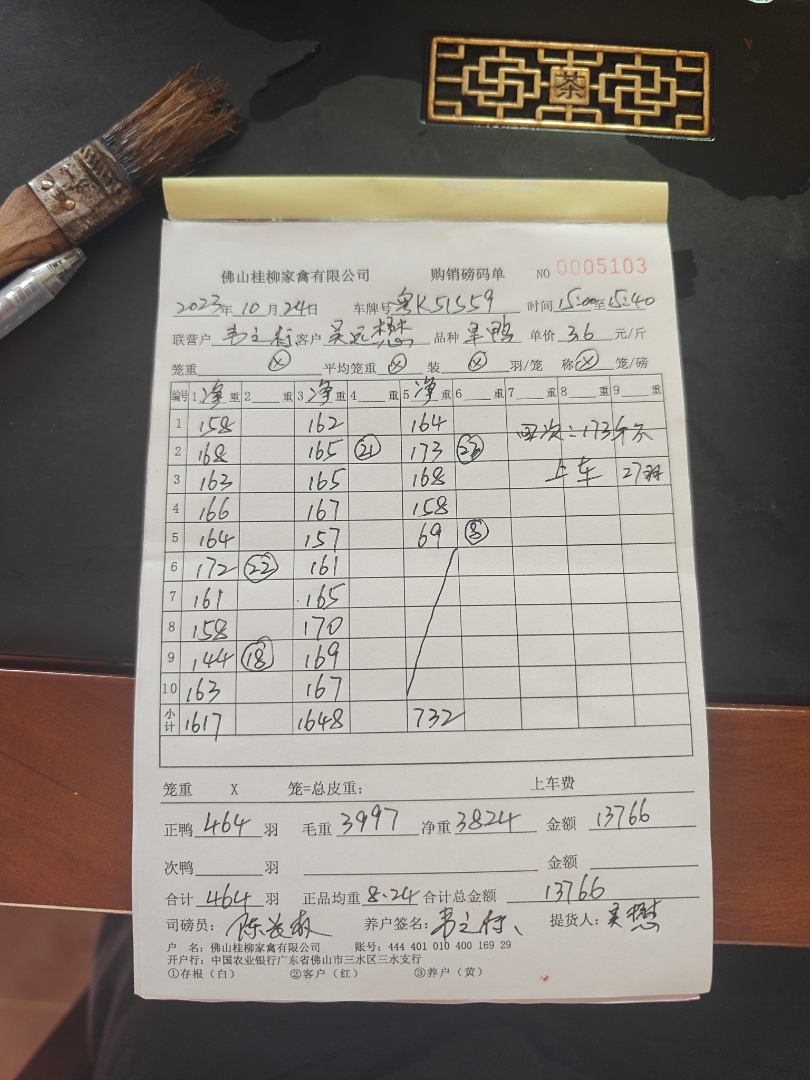 茶
佛山桂柳家禽有限公司 购销磅码单 NO 0005103
2023年 10 月 24日 车牌号 粤K51S59 时间 15:00至15:40
联营户 客户 吴 懋 品种 单价 3.6 元/斤
笼重 ⊗ 平均笼重 ⊗ 装 ⊗ 羽/笼 称 ⊗ 笼/磅
编号 1 净 重 2 重 3 净 重 4 重 5 净 重 6 重 7 重 8 重 9 重
1 158 162 164 173斤
2 168 165 21 173
3 163 165 168 上车 27羽
4 166 167 158
5 164 157 69 8
6 172 22 161
7 161 165
8 158 170
9 144 18 169
10 163 167
小计 1617 1648 732
笼重 X 笼=总皮重: 上车费
正鸭 464 羽 毛重 3997 净重 3824 金额 13766
次鸭 羽 金额
合计 464 羽 正品均重 8.24 合计总金额 13766
司磅员: 陈 养户签名: 韦 提货人: 吴 懋
户 名: 佛山桂柳家禽有限公司 账号: 444 401 010 400 169 29
开户行: 中国农业银行广东省佛山市三水区三水支行
①存根（白） ②客户（红） ③养户（黄）